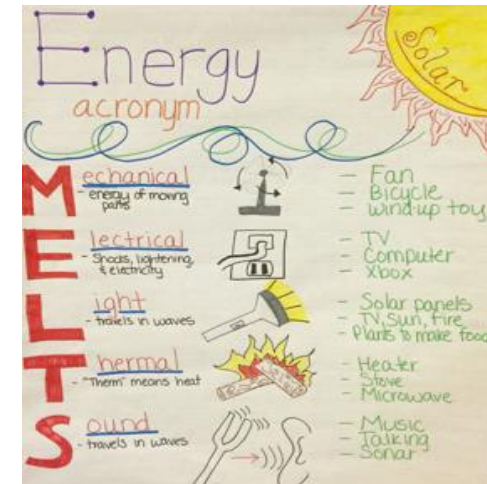 Energy
acronym
Solar
Mechanical
- energy of moving
parts
- Fan
- Bicycle
- Wind-up toy
Electrical
- Shocks, lightening,
& electricity
- TV
- Computer
- Xbox
Light
- travels in waves
- Solar panels
- TV, Sun, Fire
- Plants to make food
Thermal
- "Therm" means heat
- Heater
- Stove
- Microwave
Sound
- travels in waves
- Music
- Talking
- Sonar